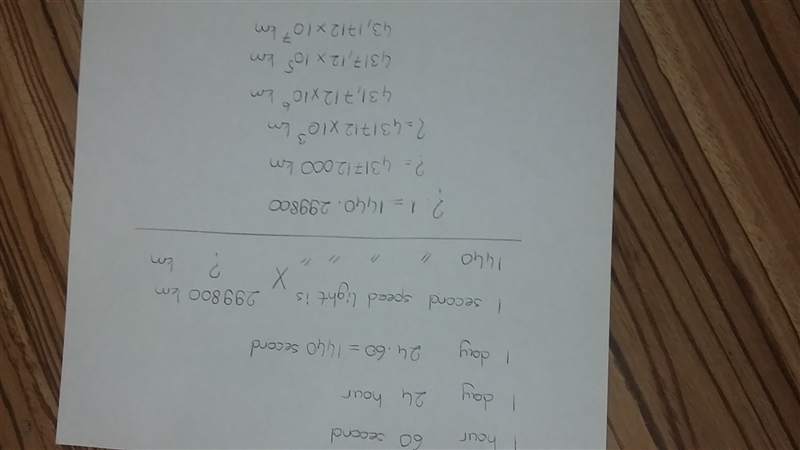 1 hour 60 second
1 day 24 hour
1 day 24.60 = 1440 second
1 second speed light is 299800 km
1440 " " " " X ? km
? . 1 = 1440 . 299800
? = 431712000 km
? = 431712x10³ km
431,712x10⁶ km
4317,12x10⁵ km
43,1712x10⁷ km